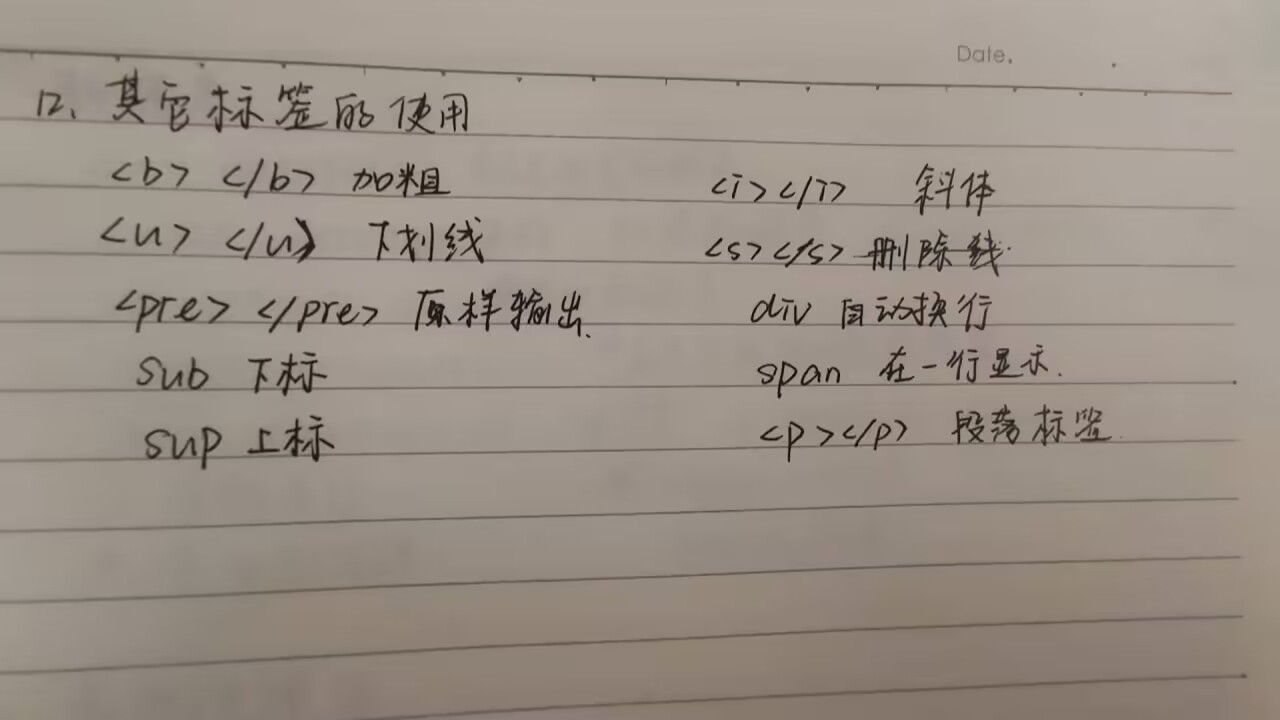 Date.
12、其它标签的使用
<b> </b> 加粗 <i></i> 斜体
<u> </u> 下划线 <s></s> 删除线
<pre> </pre> 原样输出. div 自动换行
sub 下标 span 在一行显示.
sup 上标 <p></p> 段落标签.